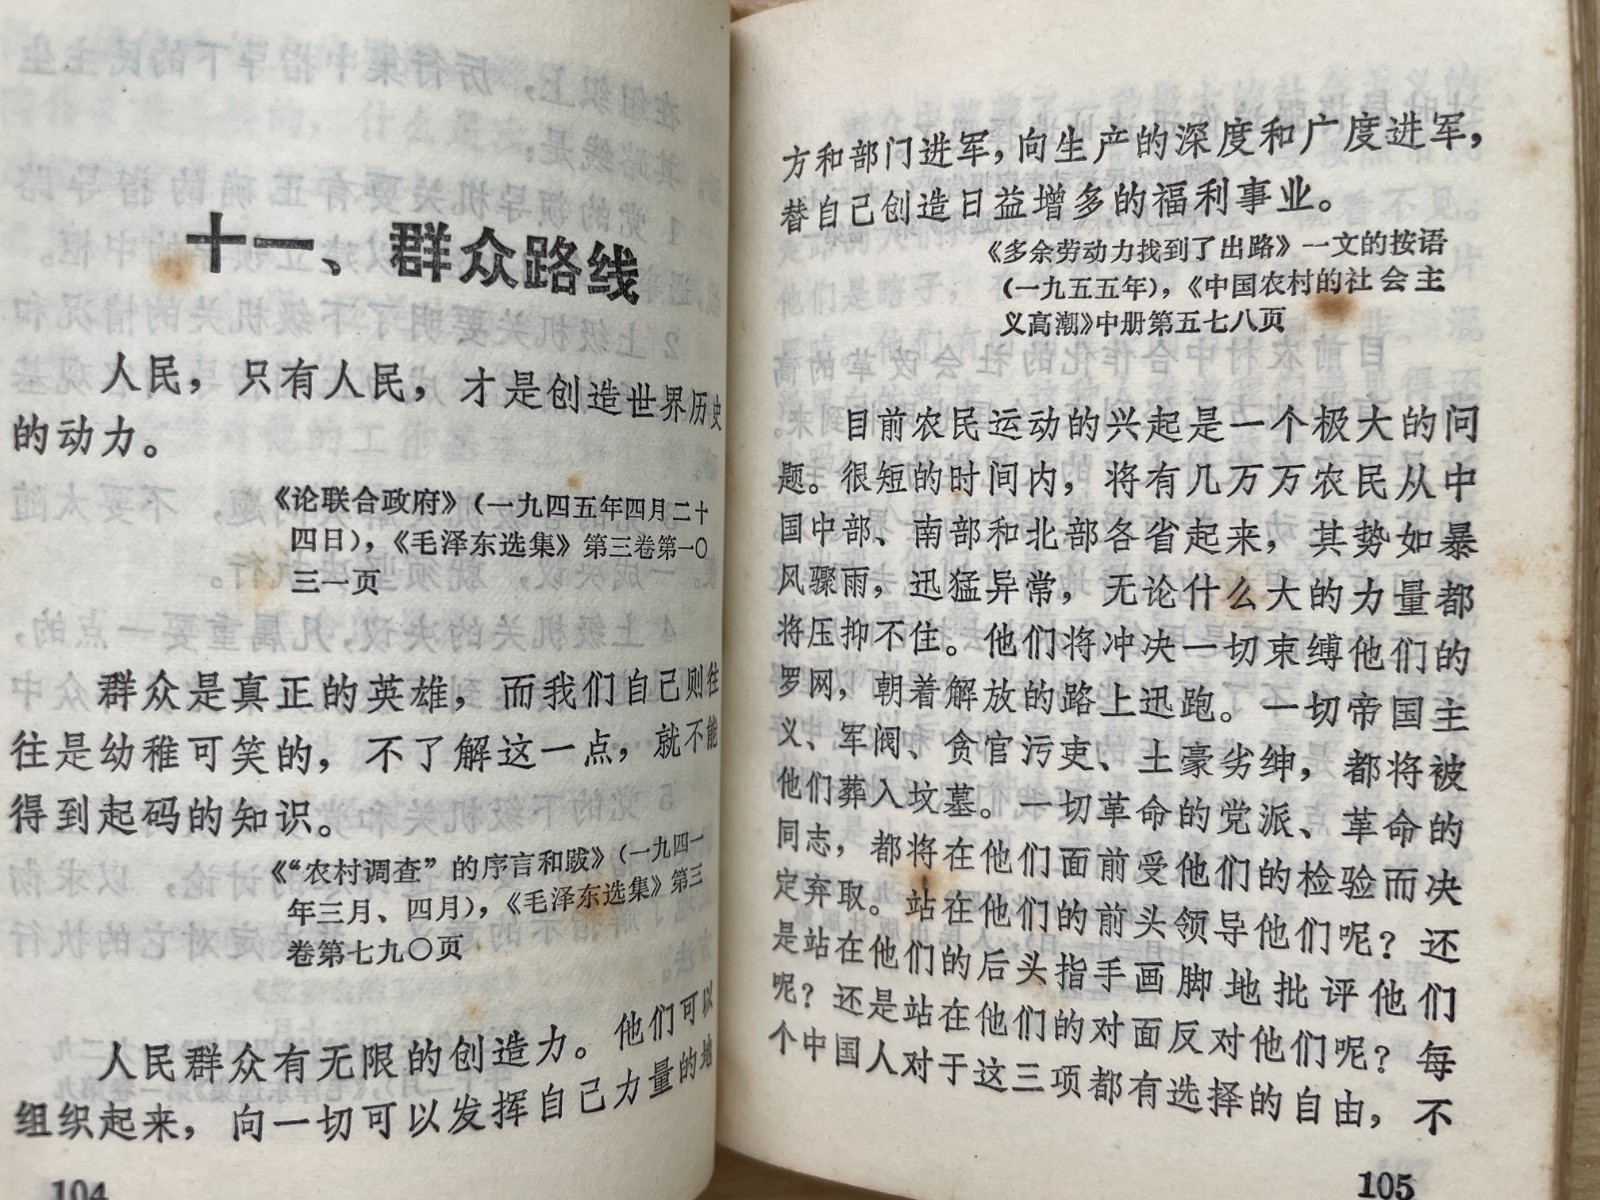 十一、群众路线
人民，只有人民，才是创造世界历史
的动力。
《论联合政府》（一九四五年四月二十
四日），《毛泽东选集》第三卷第一〇
三一页
群众是真正的英雄，而我们自己则往
往是幼稚可笑的，不了解这一点，就不能
得到起码的知识。
《“农村调查”的序言和跋》（一九四一
年三月、四月），《毛泽东选集》第三
卷第七九〇页
人民群众有无限的创造力。他们可以
组织起来，向一切可以发挥自己力量的地
104
方和部门进军，向生产的深度和广度进军，
替自己创造日益增多的福利事业。
《多余劳动力找到了出路》一文的按语
（一九五五年），《中国农村的社会主
义高潮》中册第五七八页
目前农民运动的兴起是一个极大的问
题。很短的时间内，将有几万万农民从中
国中部、南部和北部各省起来，其势如暴
风骤雨，迅猛异常，无论什么大的力量都
将压抑不住。他们将冲决一切束缚他们的
罗网，朝着解放的路上迅跑。一切帝国主
义、军阀、贪官污吏、土豪劣绅，都将被
他们葬入坟墓。一切革命的党派、革命的
同志，都将在他们面前受他们的检验而决
定弃取。站在他们的前头领导他们呢？还
是站在他们的后头指手画脚地批评他们
呢？还是站在他们的对面反对他们呢？每
个中国人对于这三项都有选择的自由，不
105